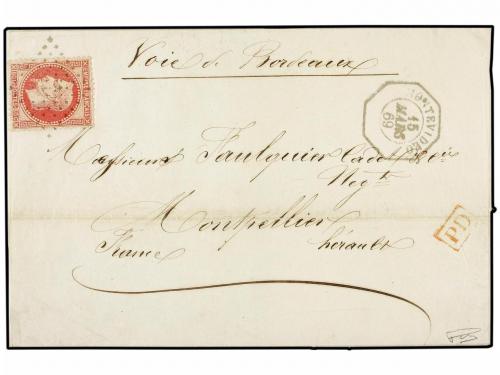 Voie de Bordeaux
MONTEVIDEO
15
MARS
69
Messieurs Faulquier Cadet & Cie
Negt
Montpellier
PD
France hérault